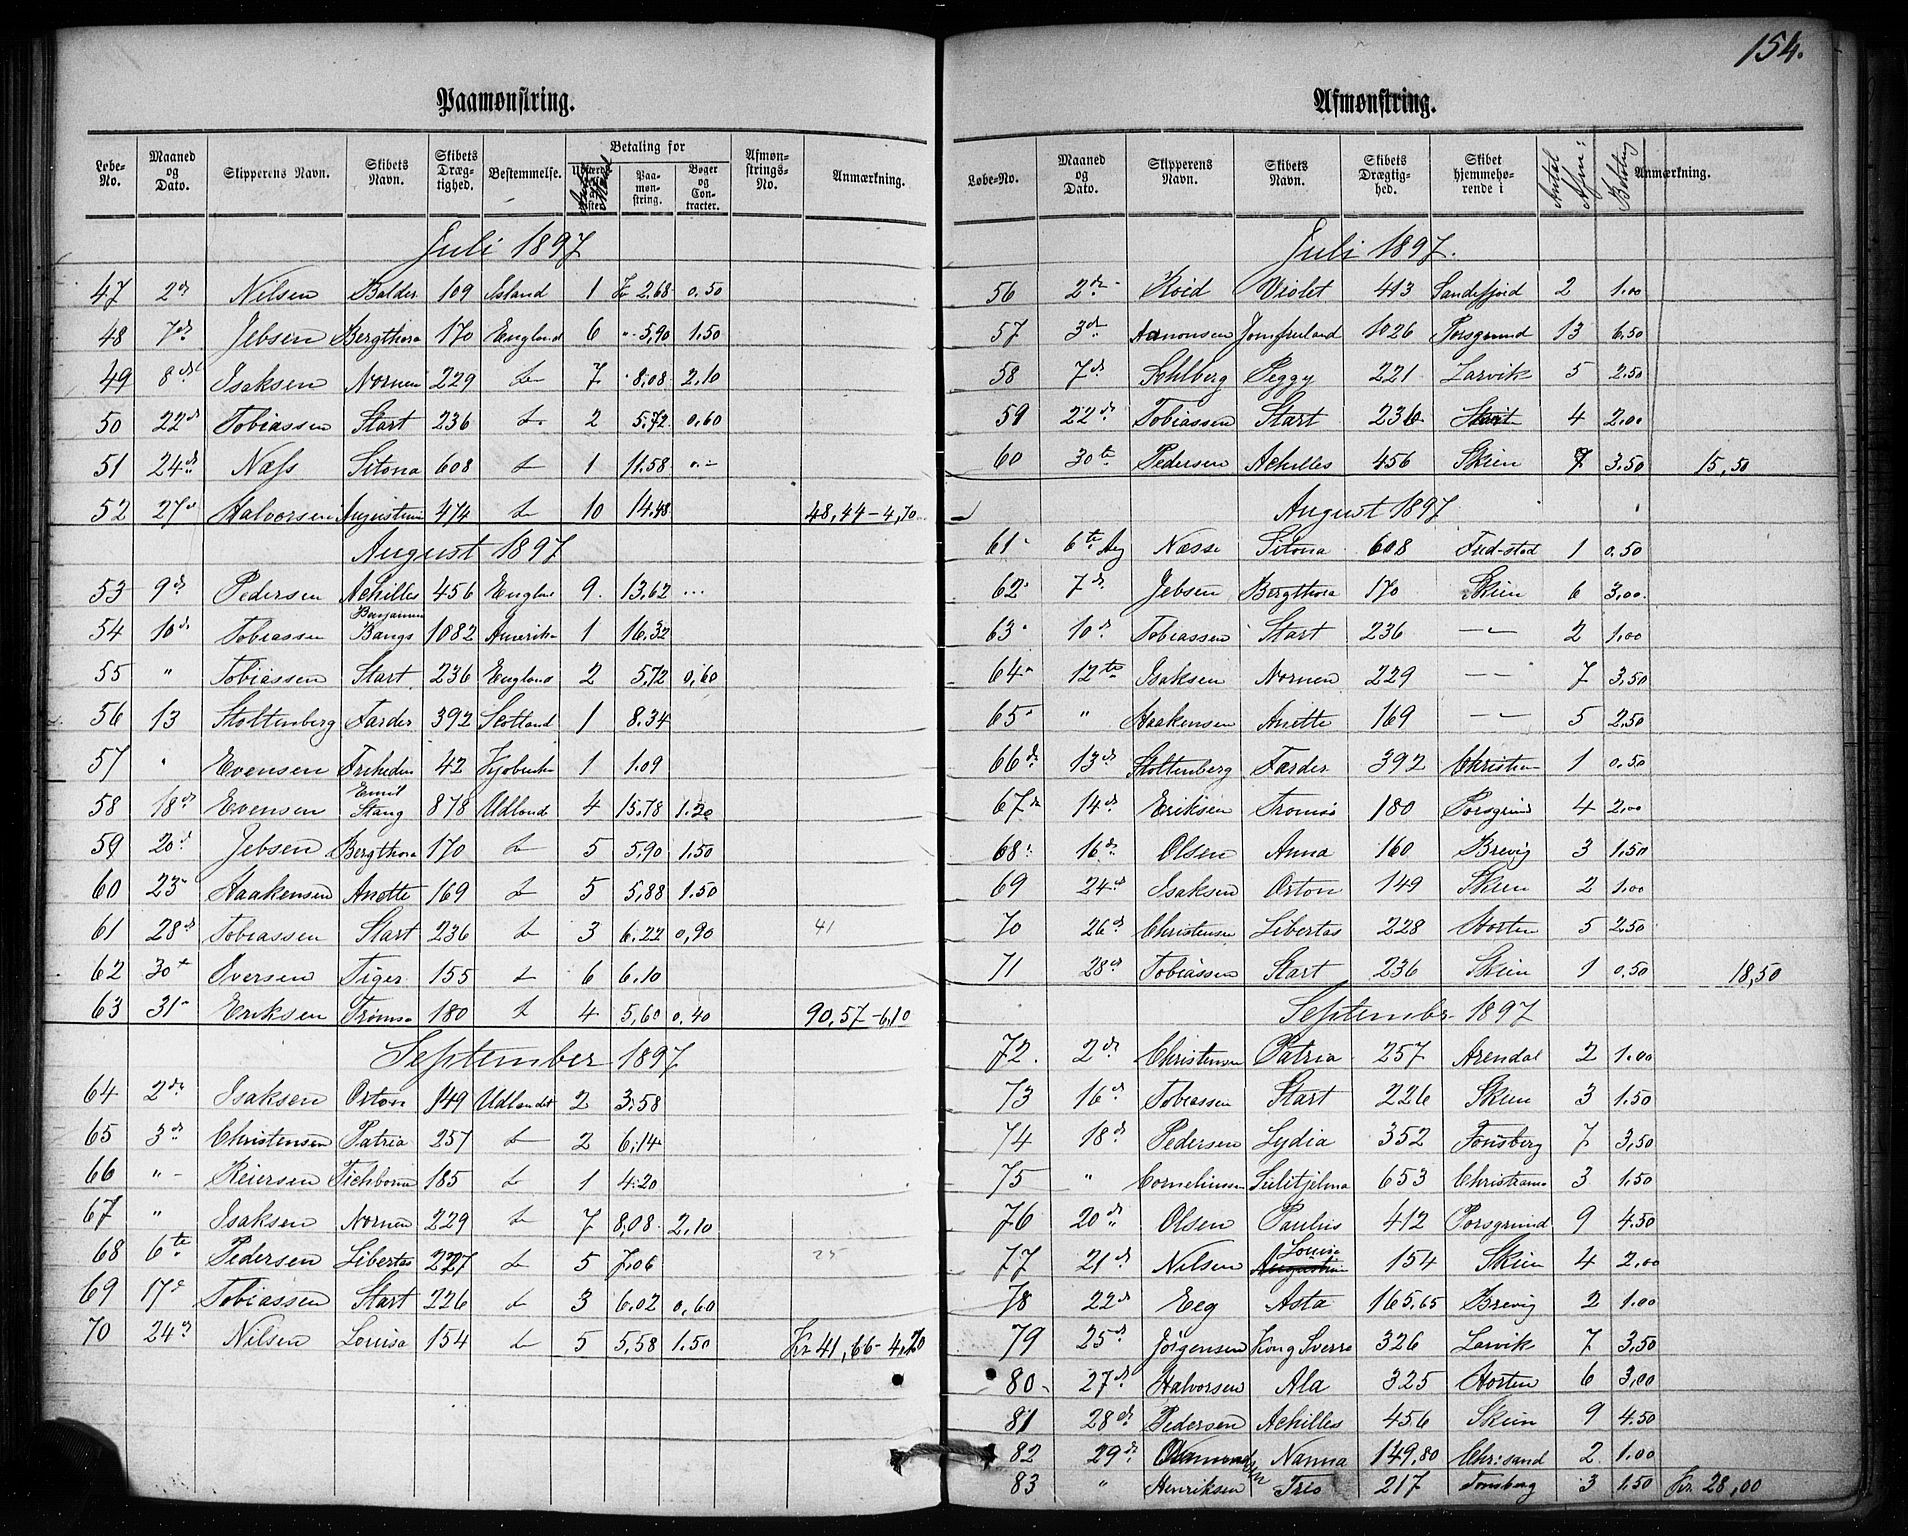 154.
Paamønstring.
Løbe-No. | Maaned og Dato. | Skipperens Navn. | Skibets Navn. | Skibets Dræg-tighed. | Bestemmelse. | Betaling for | Paa-møn-string. | Bøger og Con-tracter. | Afmøn-strings-No. | Anmærkning.
Juli 1897
47 2de Nilsen Balder 109 Island 1 Kr 2,68 0,50
48 7de Jebsen Bergthora 170 England 6 " 5,90 1,50
49 8de Isaksen Nornen 229 do 7 " 8,08 2,10
50 22de Tobiassen Start 236 do 2 5,72 0,60
51 24de Næss Sitona 608 do 1 11.58 "-
52 27de Halvorsen Augustine 474 do 10 14.48 48,44 - 4,70
August 1897
53 9de Pedersen Achilles 456 England 9. 13,62 ...
54 10de Tobiassen Benjamin Bangs 1082 Amerika 1 16,32
55 " Tobiassen Start 236 England 2 5,72 0,60
56 13 Stoltenberg Færder 392 Scotland 1 8.34
57 " Evensen Friheden 42 Kjøbenh 1 1.09
58 18de Evensen Emil Stang 878 Udlandet 4 15,78 1.20
59 20de Jebsen Bergthora 170 do 5 5,90 1,50
60 23 Haakensen Anette 169 do 5 5,88 1.50
61 28de Tobiassen Start 236 do 3 6.22 0,90 41
62 30te Iversen Tiger 155 do 6 6.10
63 31 Eriksen Tromsø 180 do 4 5,60 0,40 90,57 - 6,10
September 1897
64 2de Isaksen Orton 149 Udlandet 2 3.58
65 3de Christensen Patria 257 do 2 6,14
66 " - Reiersen Tichborne 185 do 1 4.20
67 " Isaksen Nornen 229 do 7 8,08 2,10
68 6te Pedersen Libertas 227 do 5 7,06 25
69 17de Tobiassen Start 226 do 3 6,02 0,60
70 24de Nilsen Louisa 154 do 5 5,58 1.50 Kr 41,66 - 4,70
Afmønstring.
Løbe-No. | Maaned og Dato. | Skipperens Navn. | Skibets Navn. | Skibets Drægtig-hed. | Skibet hjemmehø-rende i | Antal Afm: | Betaling | Anmærkning.
Juli 1897.
56 2de Hvid Violet 413 Sandefjord 2 1.00
57 3de Aanonsen Jomfruland 1026 Porsgrund 13 6,50
58 7de Sohlberg Peggy 221 Larvik 5 2,50
59 22de Tobiassen Start 236 Skien 4 2,00
60 30te Pedersen Achilles 456 Skien 7 3,50 15,50
August 1897
61 6te Aug Næsse Sitona 608 Fred-stad 1 0.50
62 7de Jebsen Bergthora 170 Skien 6 3,00
63 10de Tobiassen Start 236 -"- 2 1.00
64 12te Isaksen Nornen 229 -"- 7 3,50
65 " Haakensen Anette 169 -"- 5 2.50
66 13de Stoltenberg Færder 392 Christia 1 0.50
67 14de Eriksen Tromsø 180 Porsgrund 4 2,00
68 16de Olsen Anna 160 Brevig 3 1,50
69 24de Isaksen Orton 149 Skien 2 1.00
70 26de Christensen Libertas 228 Horten 5 2.50
71 28de Tobiassen Start 236 Skien 1 0.50 18,50
September 1897
72. 2de Christensen Patria 257 Arendal 2 1.00
73 16de Tobiassen Start 226 Skien 3 1.50
74 18de Pedersen Lydia 352 Tønsberg 7 3,50
75 " Corneliussen Sulitjelma 653 Christiania 3 1,50
76 20de Olsen Paulus 412 Porsgrund 9 4.50
77 21de Nilsen Augustine Louise 154 Skien 4 2,00
78 22de Eeg Asta 165,65 Brevig 2 1.00
79 25de Jørgensen Kong Sverre 326 Larvik 7 3,50
80 27de Halvorsen Ala 325 Horten 6 3,00
81 28de Pedersen Achilles 456 Skien 9 4.50
82 29de Nanna 149,80 Chr:sand 2 1.00
83 " Henriksen Trio 217 Tønsberg 3 1,50 Kr. 28,00